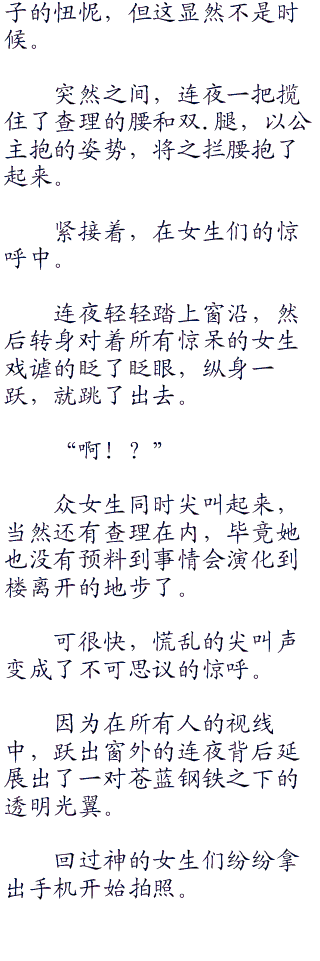 子的忸怩，但这显然不是时
候。
突然之间，连夜一把揽
住了查理的腰和双.腿，以公
主抱的姿势，将之拦腰抱了
起来。
紧接着，在女生们的惊
呼中。
连夜轻轻踏上窗沿，然
后转身对着所有惊呆的女生
戏谑的眨了眨眼，纵身一
跃，就跳了出去。
“啊！？”
众女生同时尖叫起来，
当然还有查理在内，毕竟她
也没有预料到事情会演化到
楼离开的地步了。
可很快，慌乱的尖叫声
变成了不可思议的惊呼。
因为在所有人的视线
中，跃出窗外的连夜背后延
展出了一对苍蓝钢铁之下的
透明光翼。
回过神的女生们纷纷拿
出手机开始拍照。